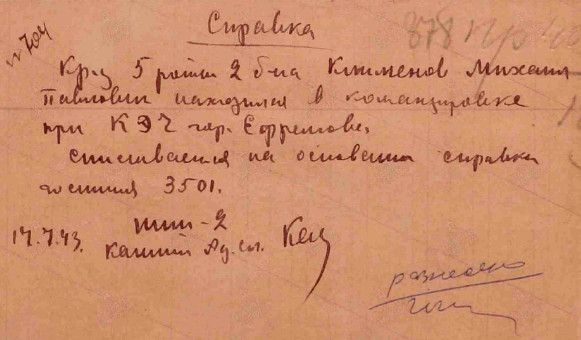 Справка
№ 704
378
Кр-ц 5 роты 2 б-на Клименов Михаил
Павлович находился в командировке
при КЭЧ гор. Ефремове.
списывается на основании справки
госпиталя 3501.
17.7.43.
разнесено